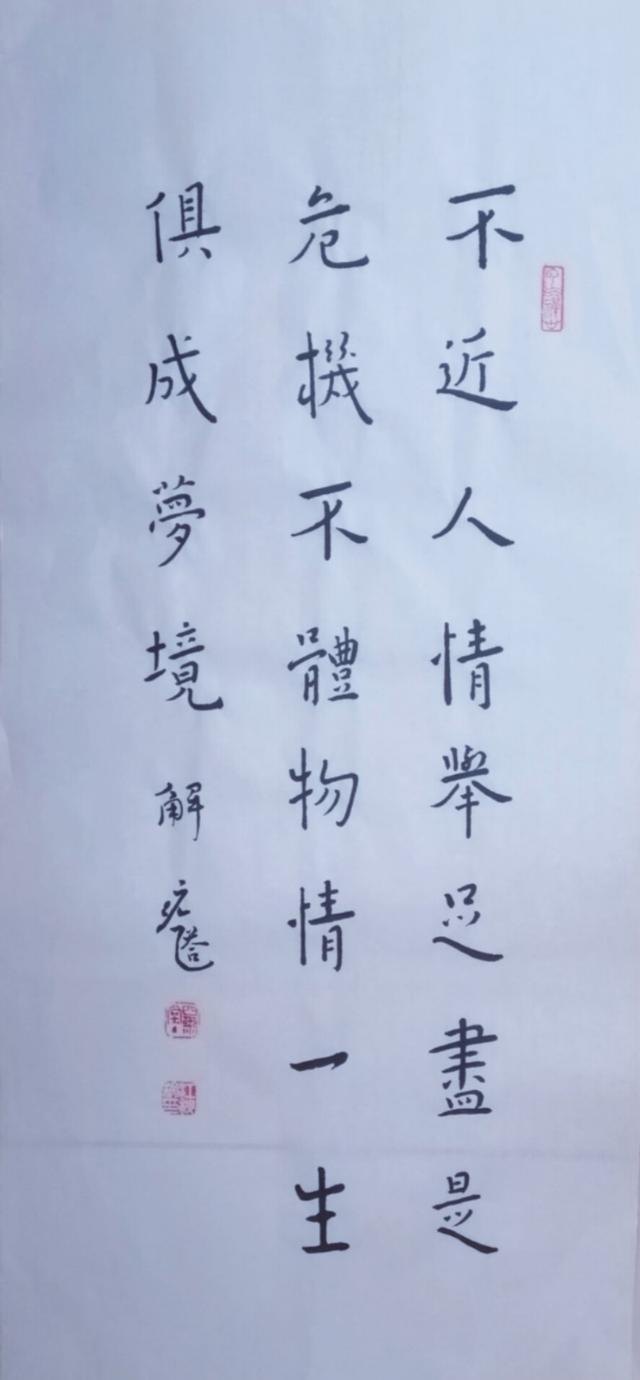 不近人情舉足盡是
危機不體物情一生
俱成夢境 解